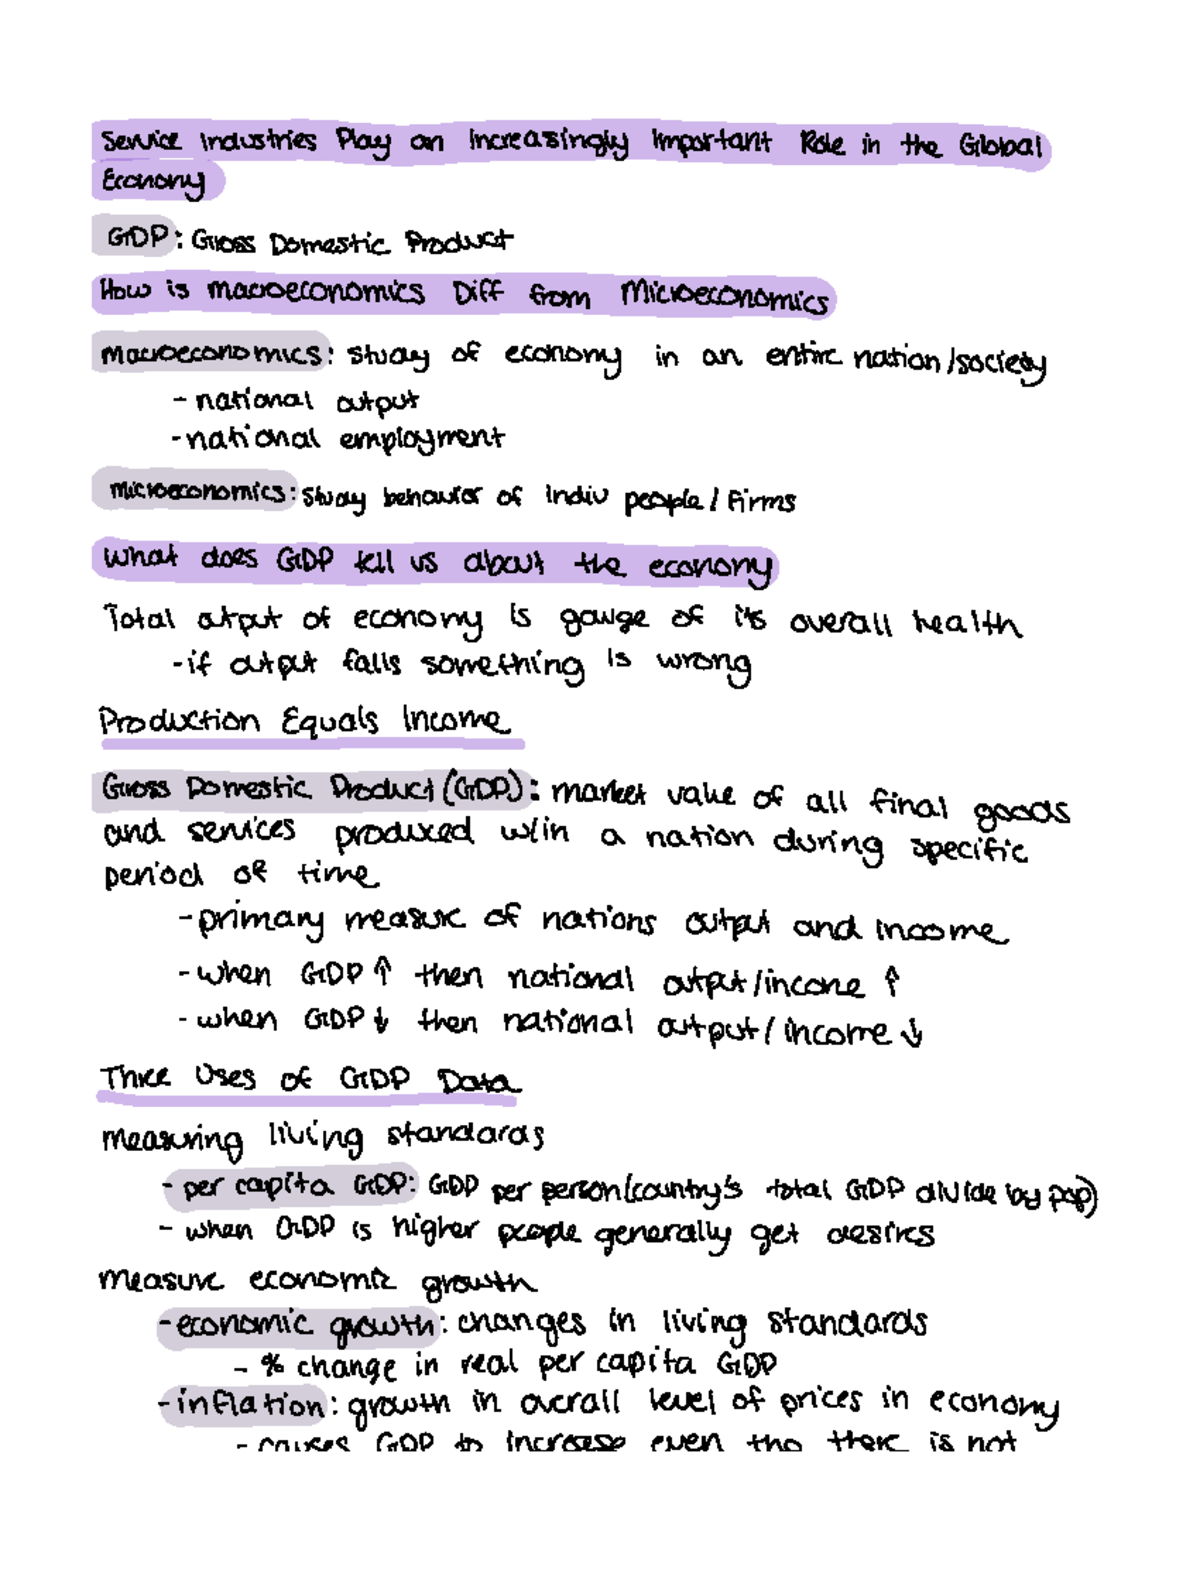 Service Industries Play an Increasingly Important Role in the Global
Economy
GDP: Gross Domestic Product
How is macroeconomics Diff from Microeconomics
macroeconomics: study of economy in an entire nation/society
- national output
- national employment
microeconomics: study behavior of indiv people/firms
What does GDP tell us about the economy
Total output of economy is gauge of its overall health
- if output falls something is wrong
Production Equals Income
Gross Domestic Product (GDP): market value of all final goods
and services produced w/in a nation during specific
period of time
- primary measure of nations output and income
- when GDP ↑ then national output/income ↑
- when GDP ↓ then national output/income ↓
Three Uses of GDP Data
measuring living standards
- per capita GDP: GDP per person(country's total GDP divide by pop)
- when GDP is higher people generally get desires
measure economic growth
- economic growth: changes in living standards
- % change in real per capita GDP
- inflation: growth in overall level of prices in economy
- causes GDP to increase even tho there is not